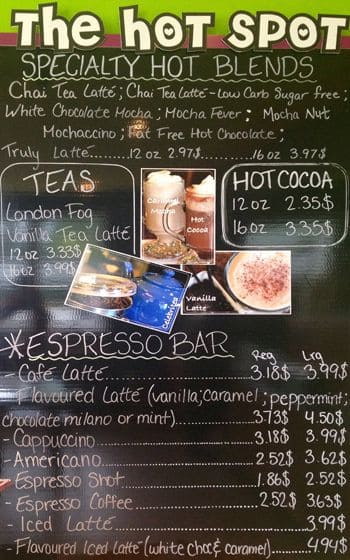 The HOT SPOT
SPECIALTY HOT BLENDS
Chai Tea Latté ; Chai Tea Latté - Low Carb Sugar free ;
White Chocolate Mocha ; Mocha Fever ; Mocha Nut
Mochaccino ; Fat Free Hot Chocolate ;
Truly Latte........12 oz 2.97$............16 oz 3.97$
TEAS
London Fog
Vanilla Tea Latté
12 oz 3.33$
16 oz 3.99$
Caramel
Mocha
Hot
Cocoa
HOT COCOA
12 oz 2.35$
16 oz 3.35$
Celebrate
Vanilla
Latte
*ESPRESSO BAR
Reg Lrg
- Café Latte........3.18$ 3.99$
- Flavoured Latté (vanilla; caramel ; peppermint;
chocolate milano or mint)........3.73$ 4.50$
- Cappuccino........3.18$ 3.99$
- Americano........2.52$ 3.62$
- Espresso Shot........1.86$ 2.52$
- Espresso Coffee........2.52$ 3.63$
- Iced Latte........3.99$
- Flavoured Iced Latté (white choc & caramel)........4.94$